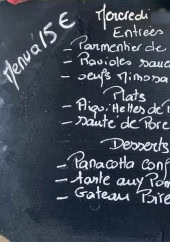 Menu à 15 €
Mercredi
Entrées
- Parmentier de
- Ravioles sauc
- oeufs Mimosa
Plats
- Aiguillettes de
- sauté de Porc
Desserts
- Panacotta conf
- tarte aux Pom
- Gateau